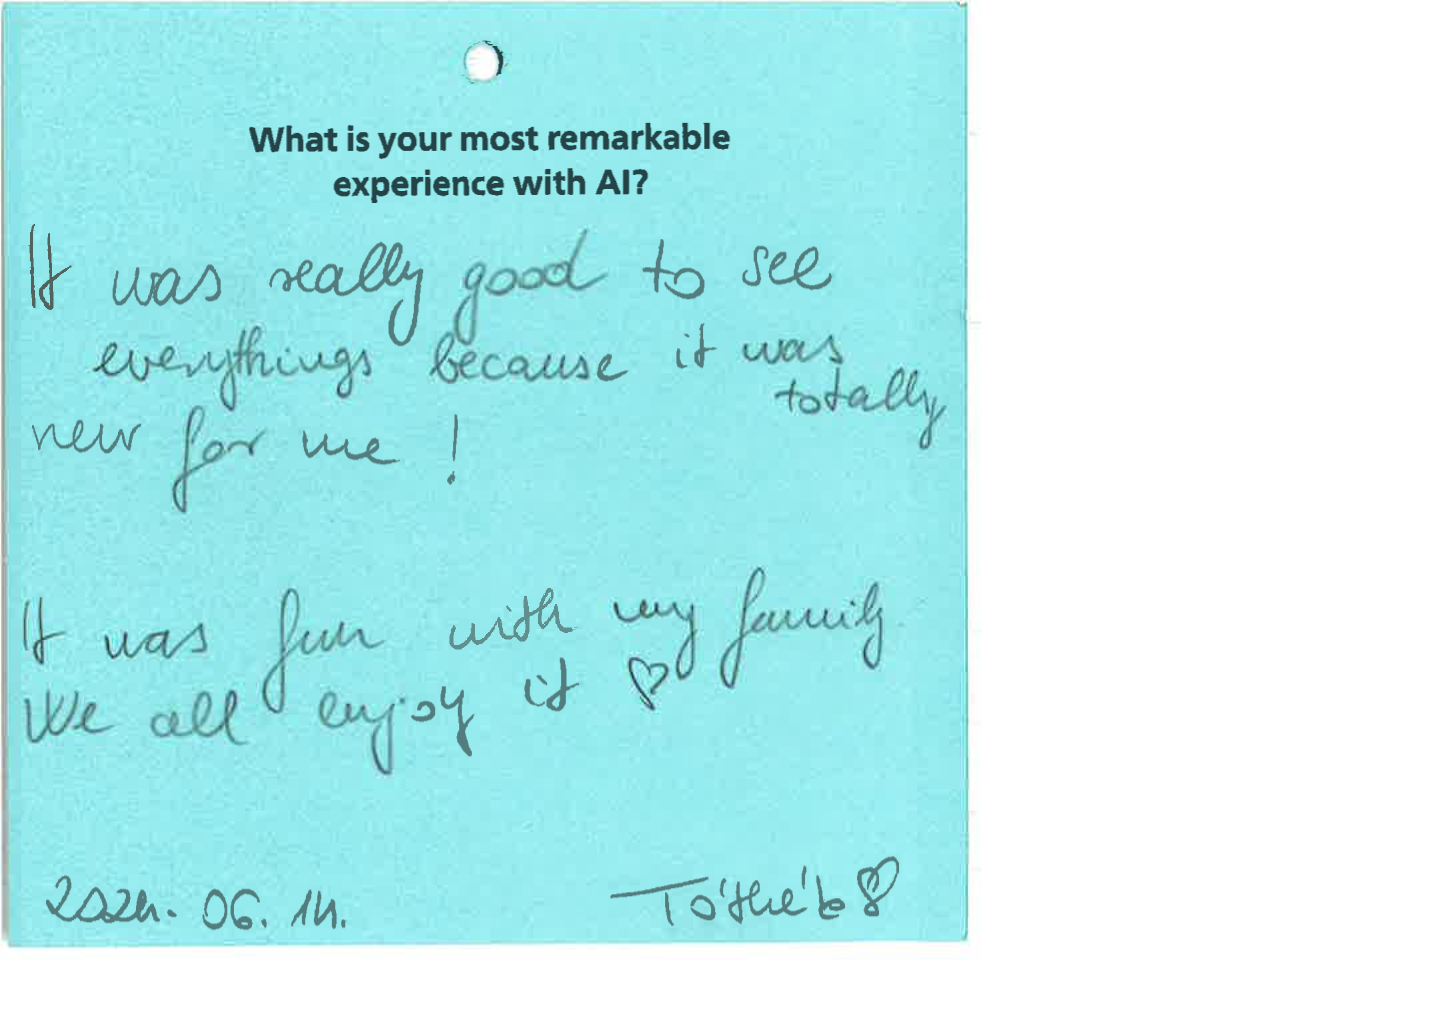 What is your most remarkable
experience with AI?
It was really good to see
everythings because it was
totally
new for me !
It was fun with my family.
We all enjoy it ♡
2024. 06. 14.
Tóthék